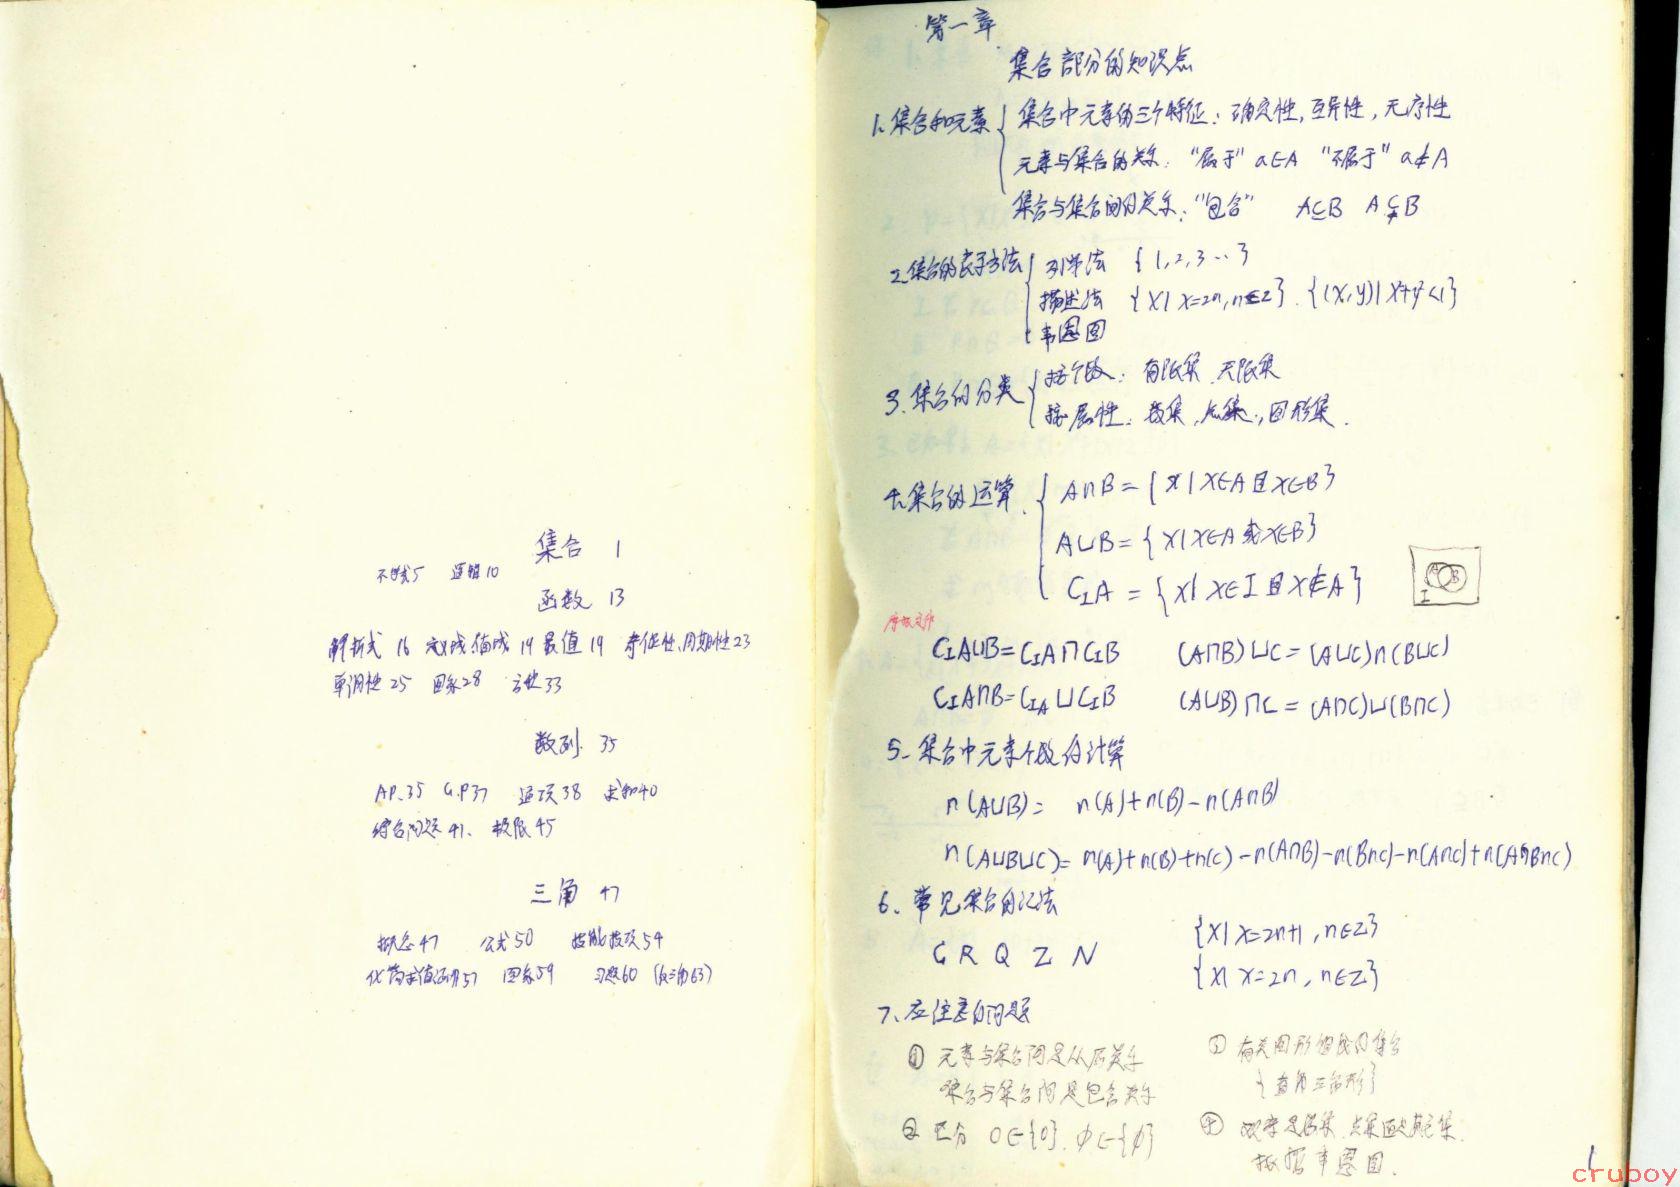 集合 1
不等式5 逻辑10
函数 13
解析式 16 定义域、值域 19 最值 19 奇偶性、周期性23
单调性 25 图象28 方程33
数列. 35
A.P.35 G.P37 通项38 求和40
综合问题41、极限45
三角 47
概念47 公式50 技能技巧54
化简求值证明57 图象59 习题60 (反三角63)
第一章
集合部分的知识点
1、集合和元素 集合中元素的三个特征：确定性，互异性，无序性
元素与集合的关系："属于" a∈A "不属于" a∉A
集合与集合间的关系："包含" A⊆B A⫋B
2、集合的表示方法 列举法 {1,2,3…}
描述法 {x|x=2n,n∈Z}. {(x,y)|x²+y²<1}
韦恩图
3、集合的分类 按个数：有限集、无限集
按属性：数集，点集，图形集.
4、集合的运算. A∩B={x|x∈A且x∈B}
A∪B={x|x∈A或x∈B}
C_IA={x|x∈I且x∉A}
A B
I
C_IA∪B=C_IA∩C_IB (A∩B)∪C=(A∪C)∩(B∪C)
C_IA∩B=C_IA∪C_IB (A∪B)∩C=(A∩C)∪(B∩C)
5、集合中元素个数的计算
n(A∪B)= n(A)+n(B)-n(A∩B)
n(A∪B∪C)=n(A)+n(B)+n(C)-n(A∩B)-n(B∩C)-n(A∩C)+n(A∩B∩C)
6、常见集合的记法
C R Q Z N
{x|x=2n+1,n∈Z}
{x|x=2n,n∈Z}
7、应注意的问题
① 元素与集合间是从属关系
集合与集合间是包含关系
② 区分 0∈{0}. ∅∈{∅}
③ 有关图形组成的集合
{直角三角形}
④ 是数集、点集还是其它集.
韦恩图.
1
cruboy